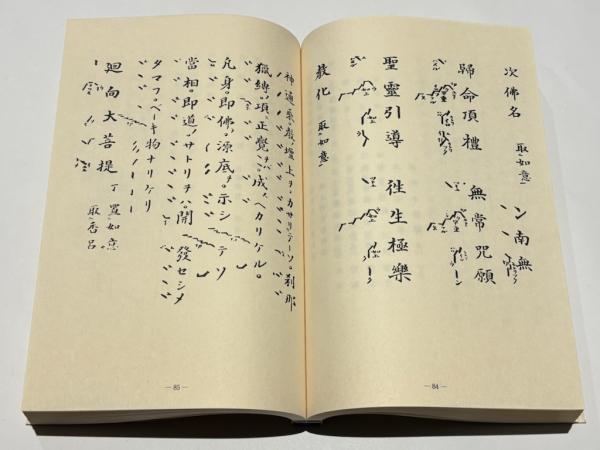 次佛名 取如意 ン南無
歸命頂禮 無常呪願
聖靈引導 徃生極樂
教化 取如意
— 84 —
神通乘ノ教ノ壇上ヲカサリテソ。刹那
獄縛ノ項ニ正覺ヲハ成スヘカリケル。
凡身。即佛ノ源底ヲ。示シテソ
當相即道ノサトリヲハ。開發セシメ
タマフヘキ物ナリケリ
廻向大菩提 丁 置如意 取香呂
— 85 —